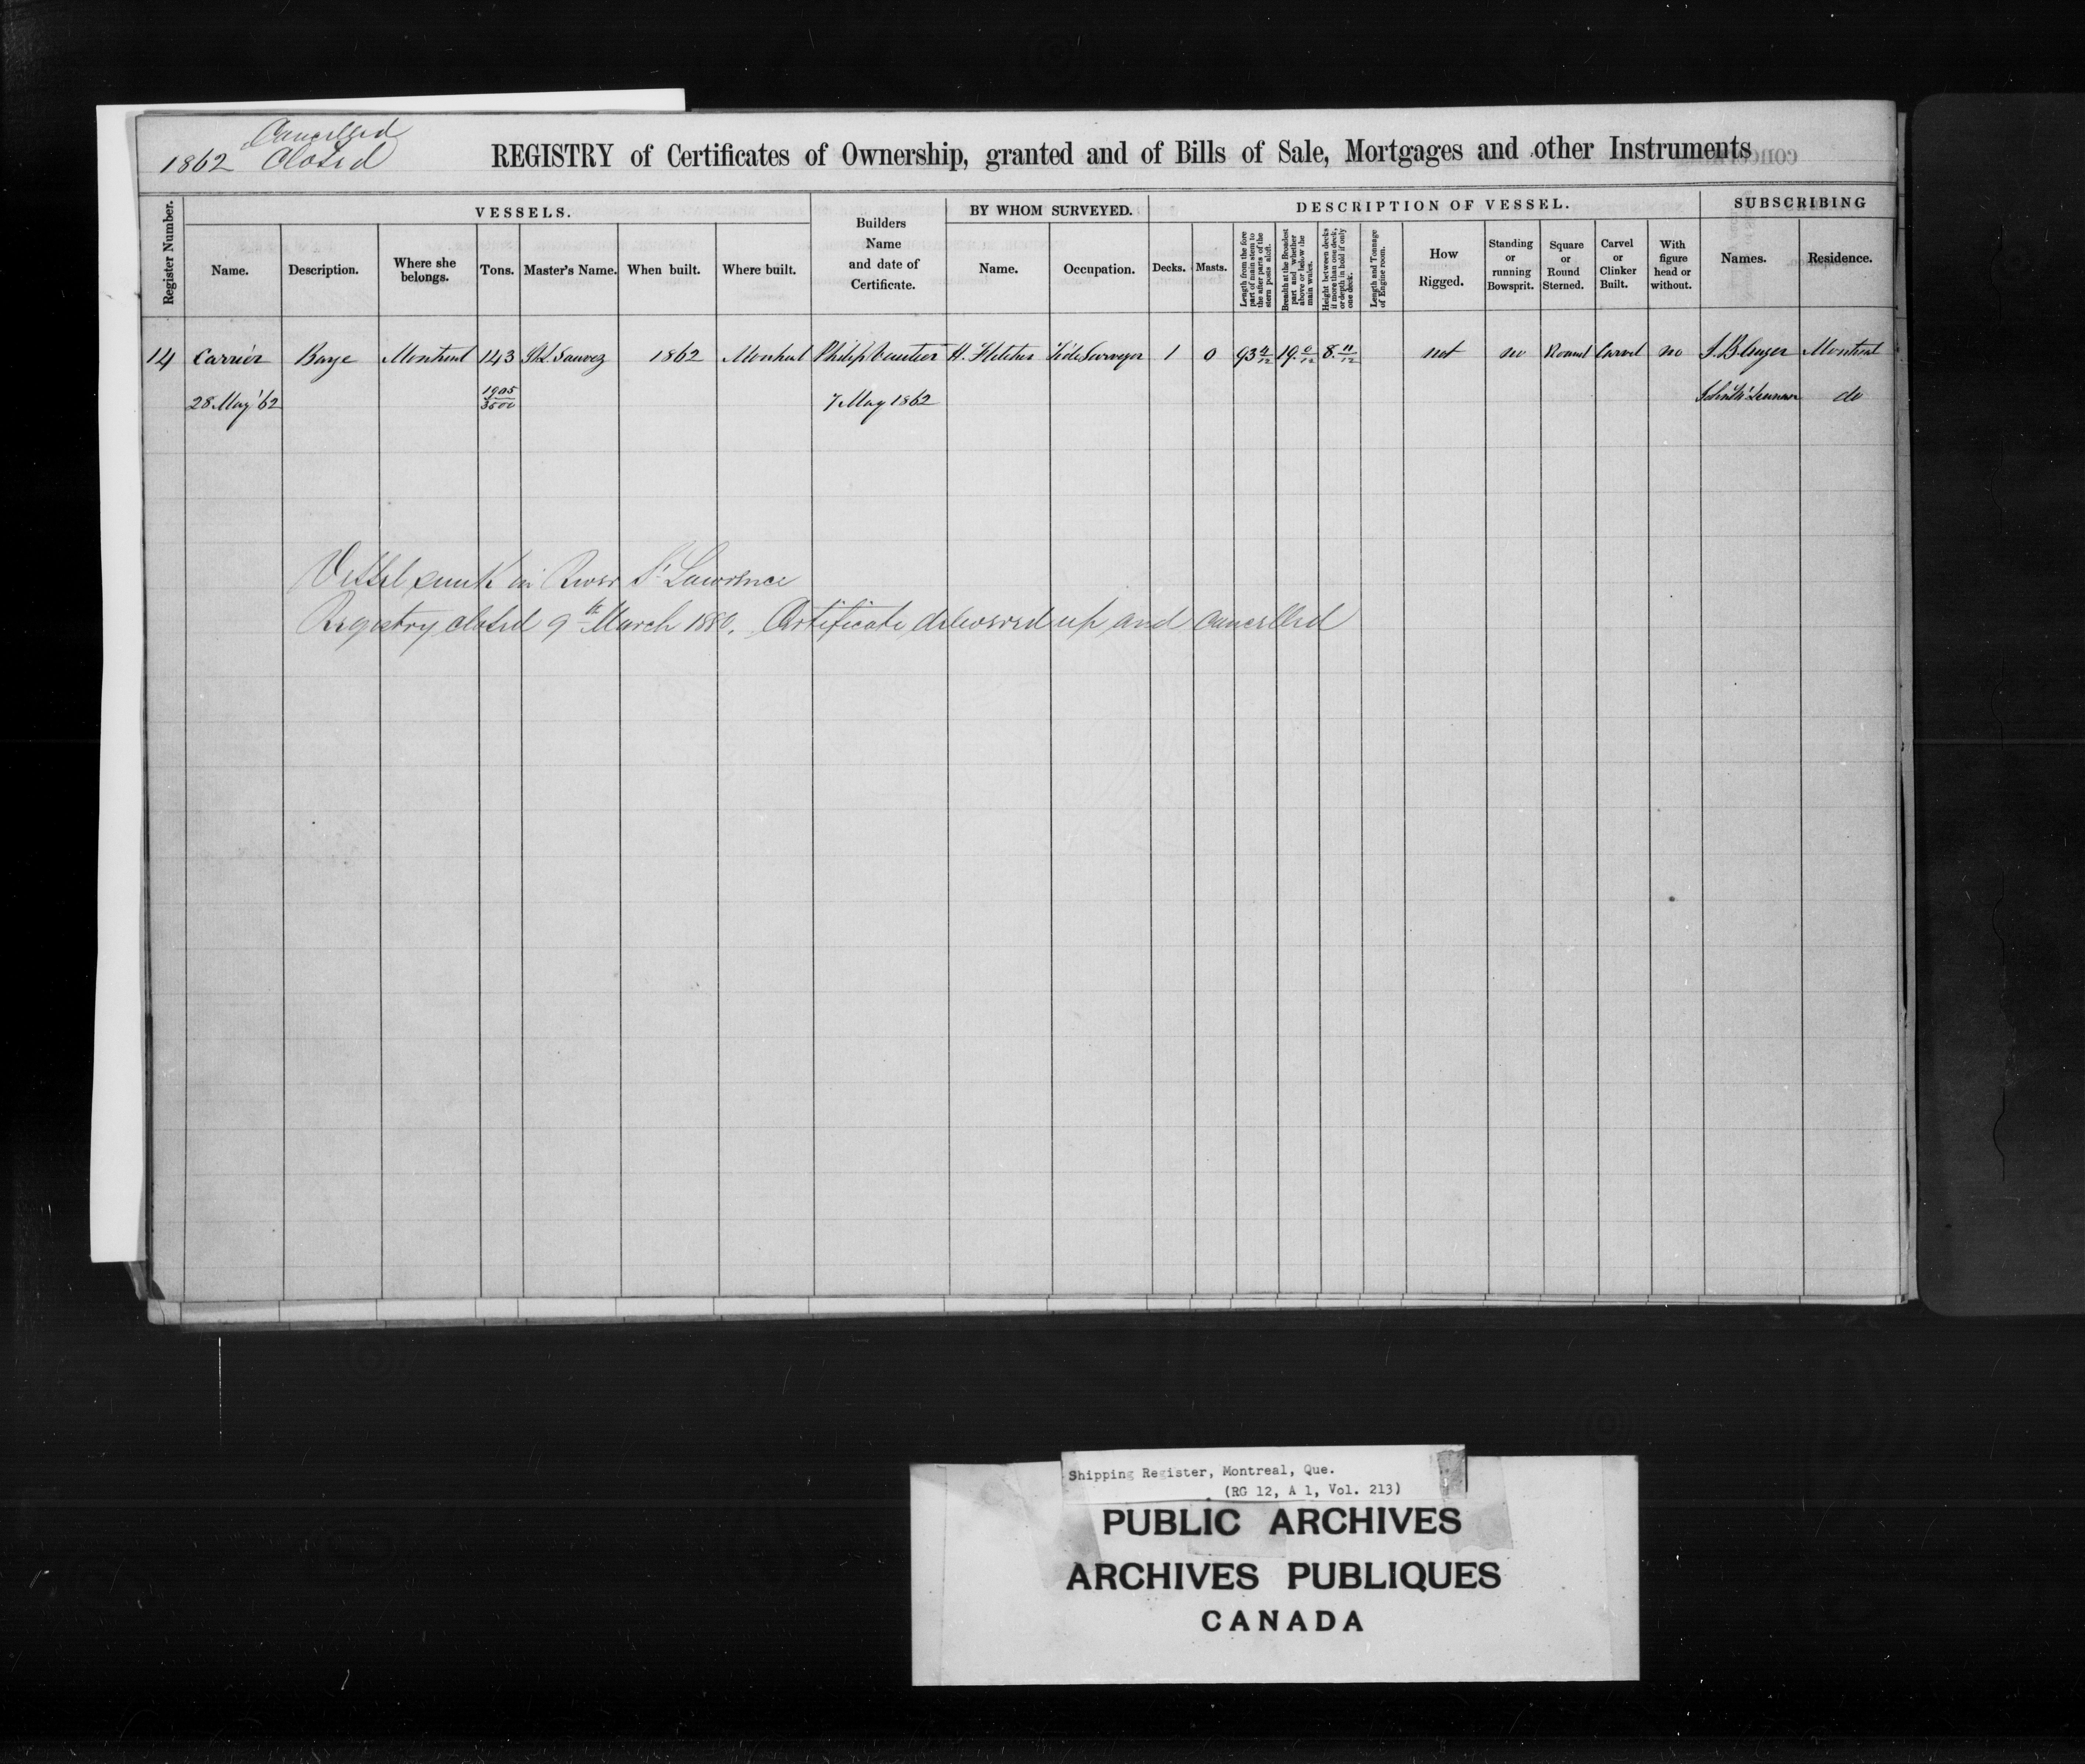 Cancelled
1862 Closed
REGISTRY of Certificates of Ownership, granted and of Bills of Sale, Mortgages and other Instruments
Register Number.
VESSELS.
Name.
Description.
Where she belongs.
Tons.
Master's Name.
When built.
Where built.
Builders Name and date of Certificate.
BY WHOM SURVEYED.
Name.
Occupation.
DESCRIPTION OF VESSEL.
Decks.
Masts.
Length from the fore part of main stem to the after parts of the stern posts aloft.
Breadth at the Broadest part and whether above or below the main wales.
Height between decks if more than one deck, or depth in hold if only one deck.
Length and Tonnage of Engine room.
How Rigged.
Standing or running Bowsprit.
Square or Round Sterned.
Carvel or Clinker Built.
With figure head or without.
SUBSCRIBING
Names.
Residence.
14 Carrier Barge Montreal 143 1862 Montreal Philip H. Fletcher Tide Surveyor 1 0 93 19 0/12 8. 11/12 not no Round Carvel no Montreal
28 May '62 1905/3500 7 May 1862 do
Vessel sunk in River St Lawrence
Registry closed 9th March 1880. Certificate delivered up and cancelled
Shipping Register, Montreal, Que.
(RG 12, A 1, Vol. 213)
PUBLIC ARCHIVES
ARCHIVES PUBLIQUES
CANADA